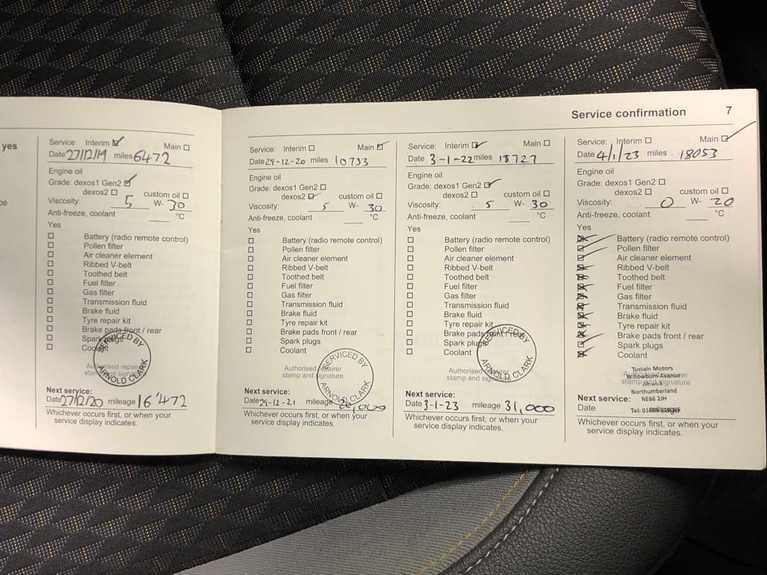 Service confirmation 7
yes
Service: Interim Main
Date 27/12/19 miles 6472
Engine oil
Grade: dexos1 Gen2
dexos2 custom oil
Viscosity: 5 W- 30
Anti-freeze, coolant °C
Yes
Battery (radio remote control)
Pollen filter
Air cleaner element
Ribbed V-belt
Toothed belt
Fuel filter
Gas filter
Transmission fluid
Brake fluid
Tyre repair kit
Brake pads front / rear
Spark plugs
Coolant
SERVICED BY
ARNOLD CLARK
Authorised repairer
stamp and signature
Next service:
Date 27/12/20 mileage 16'472
Whichever occurs first, or when your
service display indicates.
Service: Interim Main
Date 29-12-20 miles 10733
Engine oil
Grade: dexos1 Gen2
dexos2 custom oil
Viscosity: 5 W- 30
Anti-freeze, coolant °C
Yes
Battery (radio remote control)
Pollen filter
Air cleaner element
Ribbed V-belt
Toothed belt
Fuel filter
Gas filter
Transmission fluid
Brake fluid
Tyre repair kit
Brake pads front / rear
Spark plugs
Coolant
SERVICED BY
ARNOLD CLARK
Authorised repairer
stamp and signature
Next service:
Date 29-12-21 mileage
Whichever occurs first, or when your
service display indicates.
Service: Interim Main
Date 3-1-22 miles
Engine oil
Grade: dexos1 Gen2
dexos2 custom oil
Viscosity: 5 W- 30
Anti-freeze, coolant °C
Yes
Battery (radio remote control)
Pollen filter
Air cleaner element
Ribbed V-belt
Toothed belt
Fuel filter
Gas filter
Transmission fluid
Brake fluid
Tyre repair kit
Brake pads front / rear
Spark plugs
Coolant
SERVICED BY
ARNOLD CLARK
Authorised repairer
stamp and signature
Next service:
Date 3-1-23 mileage 31,000
Whichever occurs first, or when your
service display indicates.
Service: Interim Main
Date 4/1/23 miles 18053
Engine oil
Grade: dexos1 Gen2
dexos2 custom oil
Viscosity: 0 W- 20
Anti-freeze, coolant °C
Yes
Battery (radio remote control)
Pollen filter
Air cleaner element
Ribbed V-belt
Toothed belt
Fuel filter
Gas filter
Transmission fluid
Brake fluid
Tyre repair kit
Brake pads front / rear
Spark plugs
Coolant
Motors
Avenue
Northumberland
Tel:
Next service:
Date
Whichever occurs first, or when your
service display indicates.